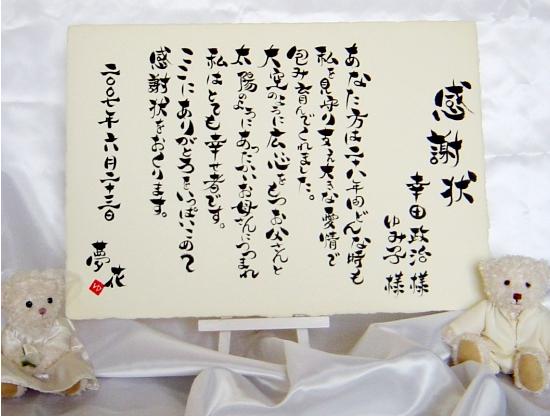 感謝状
幸田政治様
ゆみ子様
あなた方は二八年間どんな時も
私を見守り支え大きな愛情で
包み育んでくれました。
大空のように広い心をもつお父さんと
太陽のようにあったかいお母さんにつつまれ
私はとても幸せ者です。
ここにありがとうをいっぱいこめて
感謝状をおくります。
二〇〇七年六月二十三日
夢花